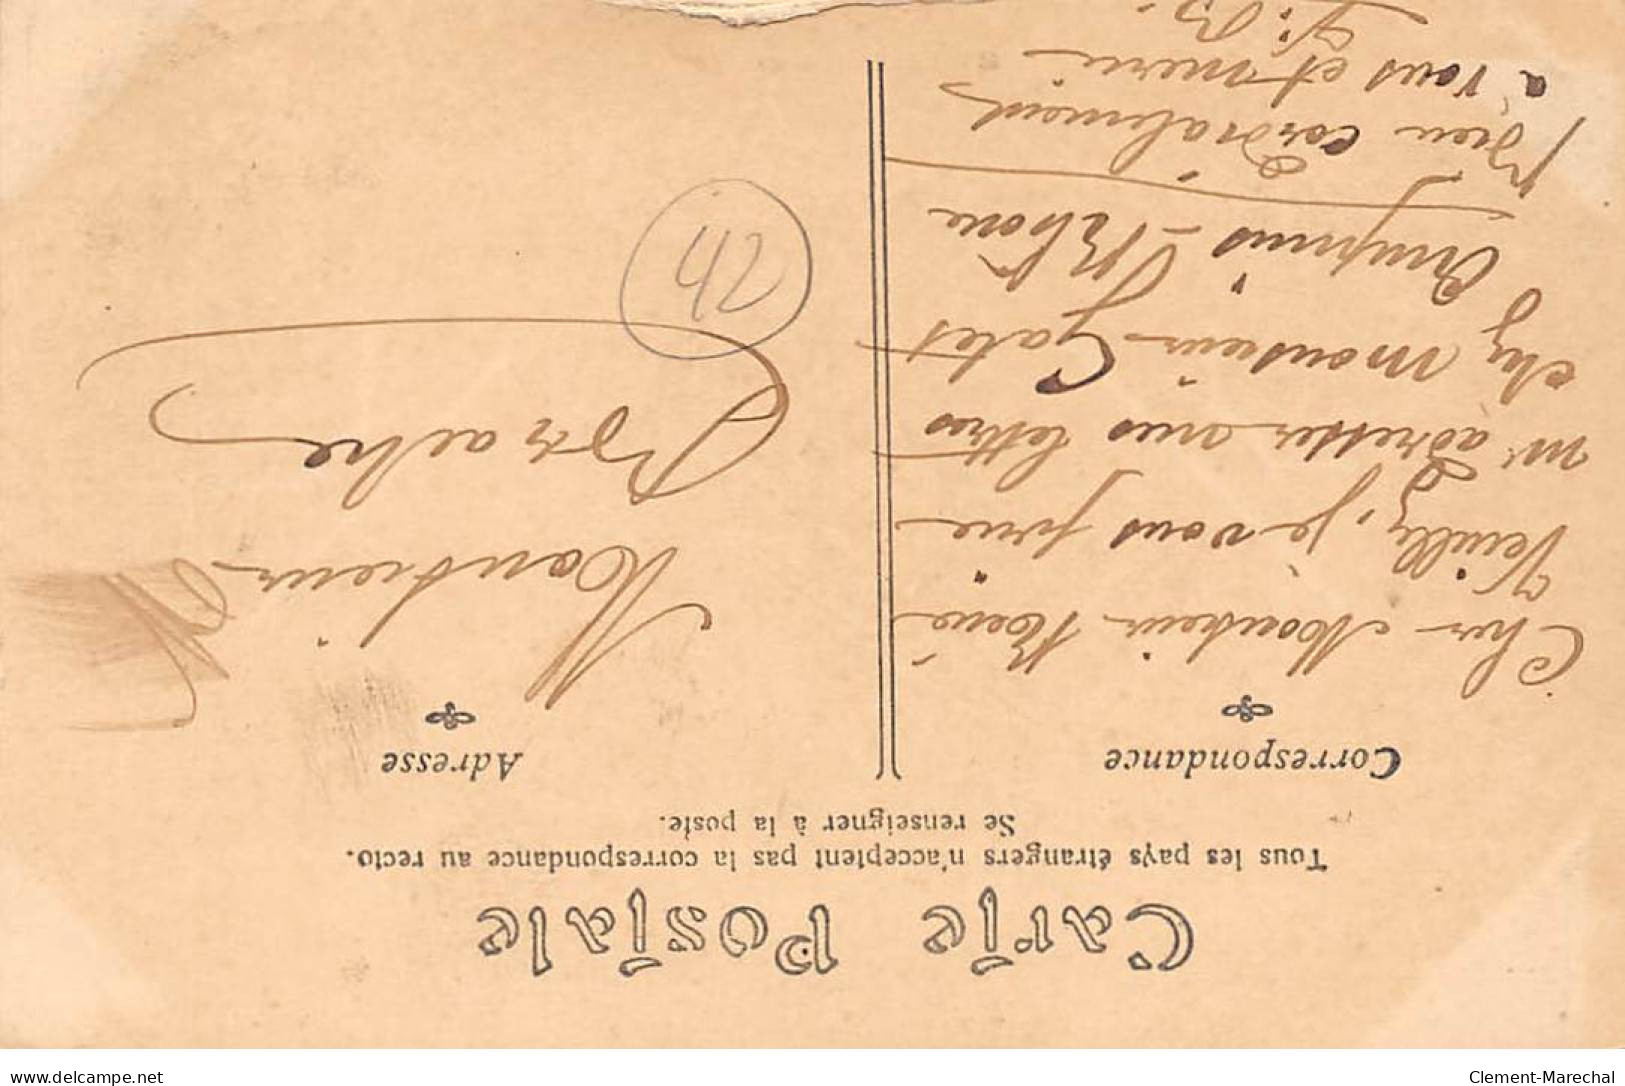 Carte Postale
Tous les pays étrangers n'acceptent pas la correspondance au recto.
Se renseigner à la poste.
Correspondance
Cher Monsieur René
Veuillez, je vous prie
m'adresser mes lettres
chez monsieur Galet
Bien cordialement
à vous et merci
Adresse
Monsieur
42
delcampe.net
Clement-Marechal